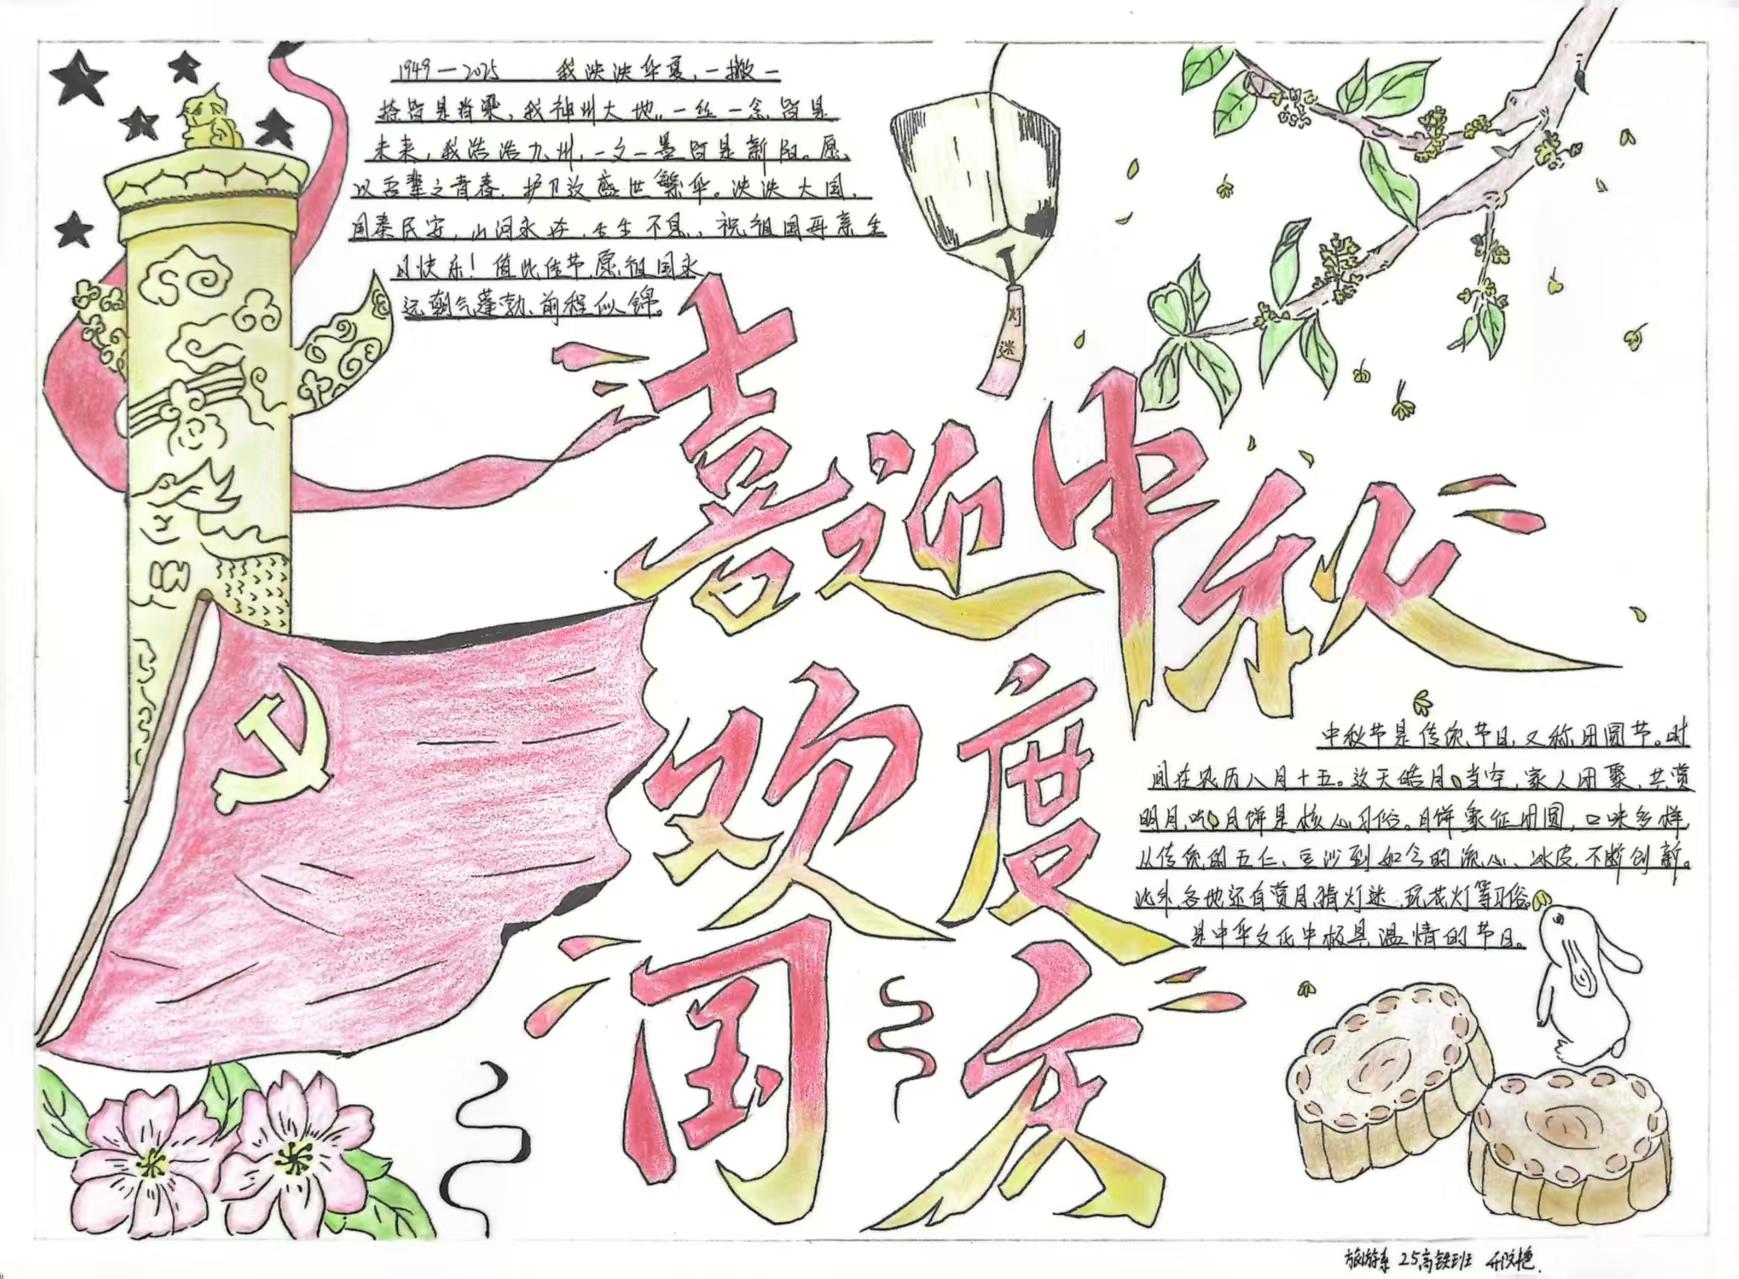 1949—2025 我泱泱华夏，一撇一
捺皆是脊梁，我神州大地，一丝一余皆是
未来，我浩浩九州，一文一墨皆是新阳。愿
以吾辈之青春，护卫这盛世繁华。泱泱大国，
国泰民安，山河永在，生生不息，祝祖国母亲生
日快乐！值此佳节，愿祖国永
远朝气蓬勃、前程似锦。
灯
迷
喜迎中秋
欢度
国庆
中秋节是传统节日，又称团圆节。时
间在农历八月十五。这天皓月当空，家人团聚，共赏
明月，吃月饼是核心习俗。月饼象征团圆，口味多样，
从传统的五仁、豆沙到如今的流心、冰皮，不断创新。
此外，各地还有赏月，猜灯迷，玩花灯等习俗。
是中华文化中极具温情的节日。
旅游系 25高铁班